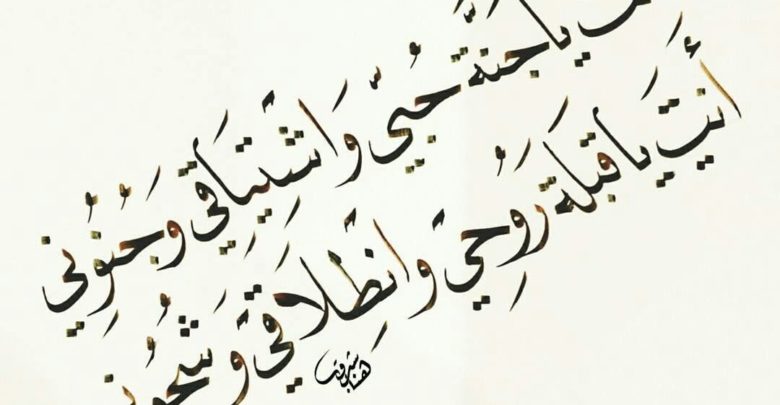 يا جنة حبي واشتياقي وجنوني
أنت يا قبلة روحي وانطلاقي وشجوني